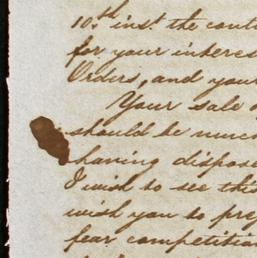 10.th inst. the cont
for your interes
Orders, and your
Your sale o
should be much
having dispose
I wish to see this
wish you to pre
fear competition